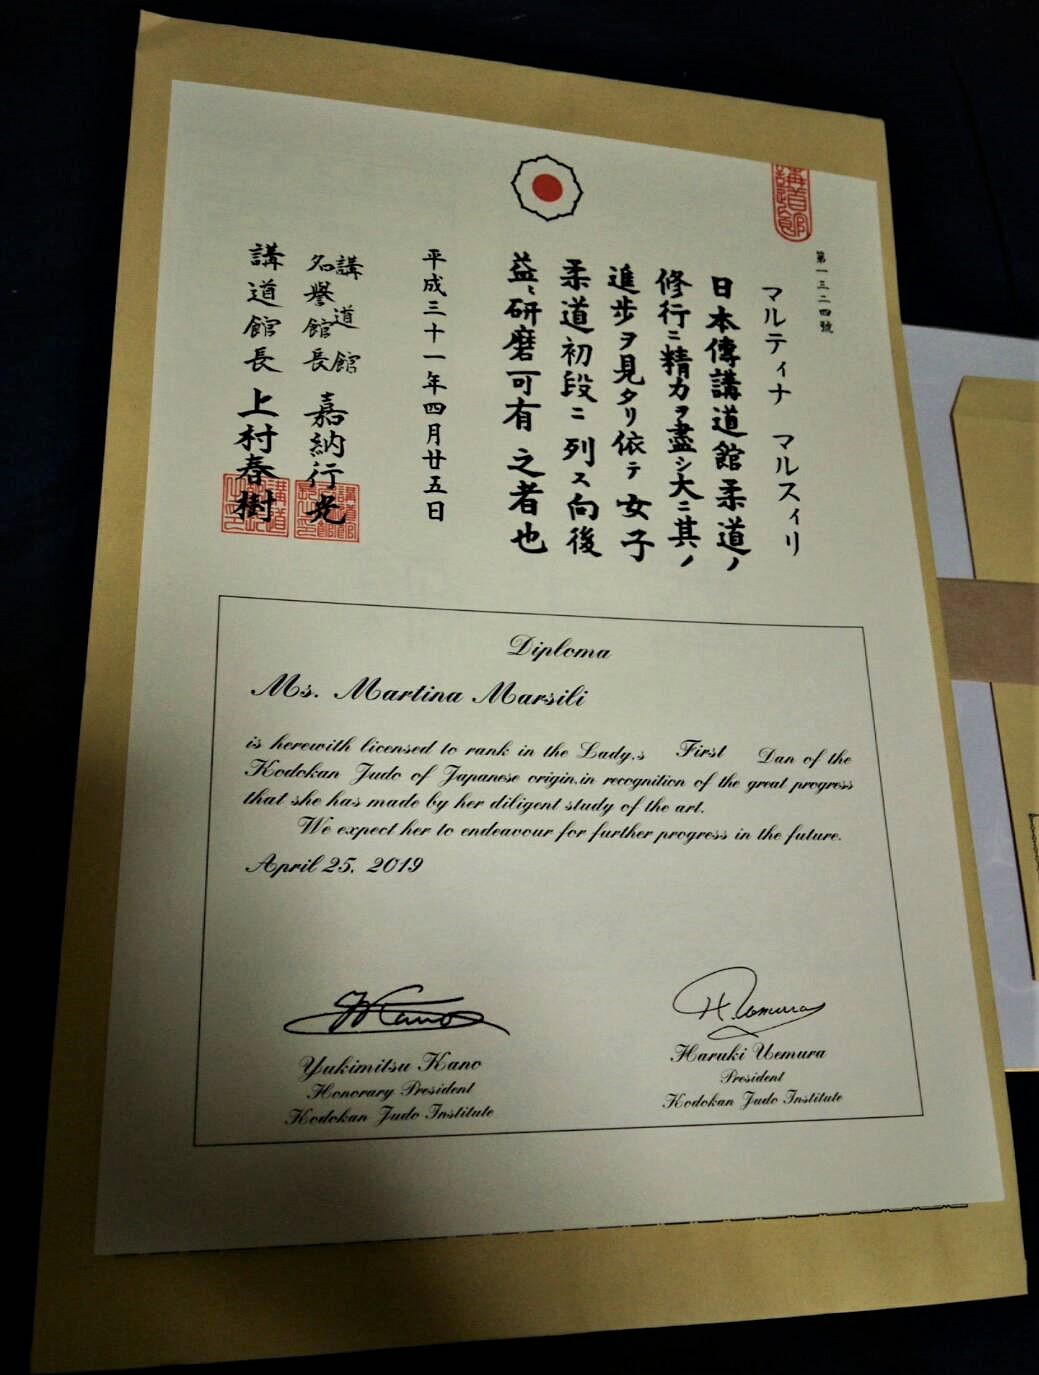 第一三二四號
マルティナ マルスィリ
日本傳講道館柔道ノ
修行ニ精力ヲ盡シ大ニ其ノ
進歩ヲ見タリ依テ女子
柔道初段ニ列ス向後
益〻研磨可有之者也
平成三十一年四月廿五日
講道館
名譽館長 嘉納行光
講道館長 上村春樹
Diploma
Ms. Martina Marsili
is herewith licensed to rank in the Lady,s First Dan of the
Kodokan Judo of Japanese origin,in recognition of the great progress
that she has made by her diligent study of the art.
We expect her to endeavour for further progress in the future.
April 25, 2019
Y Kano
H. Uemura
Yukimitsu Kano
Honorary President
Kodokan Judo Institute
Haruki Uemura
President
Kodokan Judo Institute